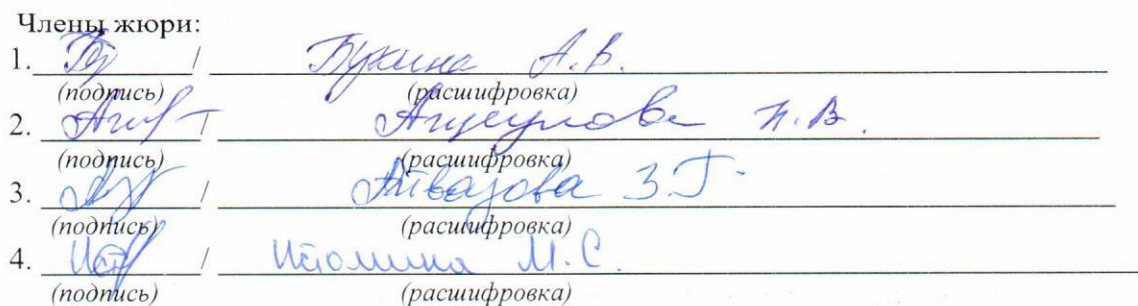 Члены жюри:
1. / Букина А.В.
(подпись) (расшифровка)
2. / Н.В.
(подпись) (расшифровка)
3. / Айвазова З.Г.
(подпись) (расшифровка)
4. / Истомина М.С.
(подпись) (расшифровка)